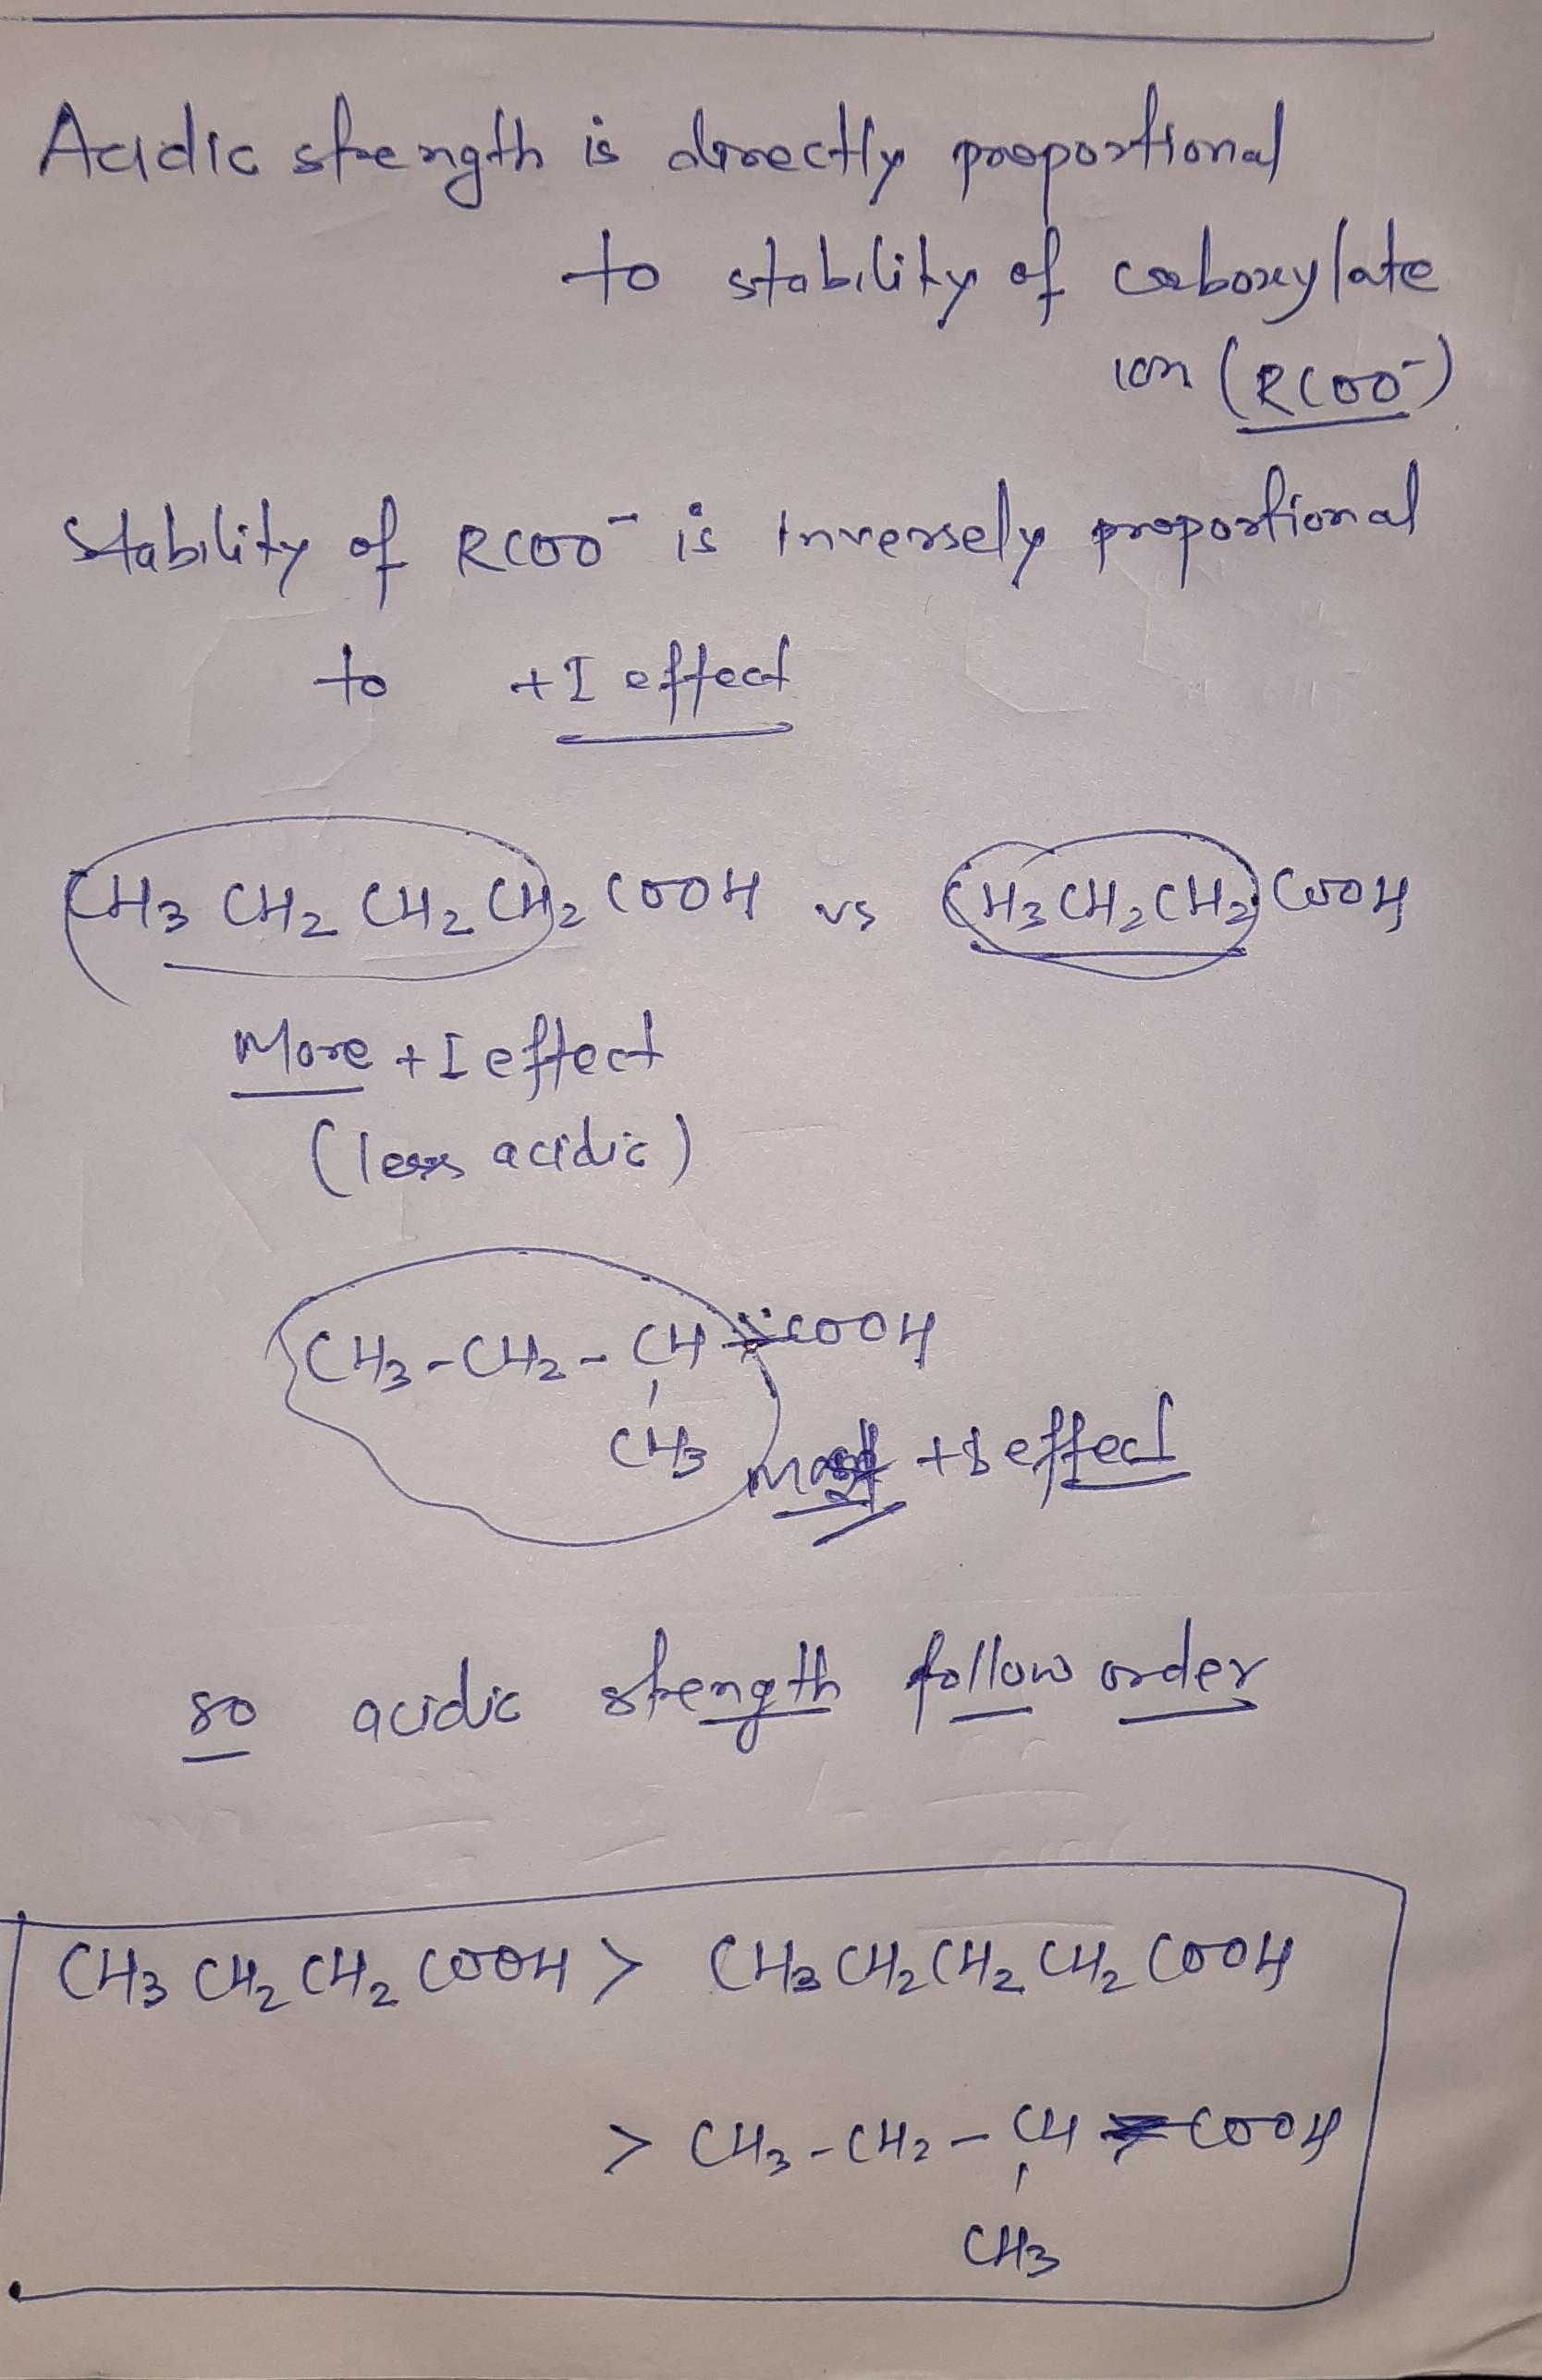 Acidic strength is directly proportional
to stability of carboxylate
ion (RCOO⁻)
Stability of RCOO⁻ is Inversely proportional
to +I effect
CH₃ CH₂ CH₂ CH₂ COOH vs CH₃CH₂CH₂ COOH
More +I effect
(less acidic)
CH₃-CH₂-CH-COOH
CH₃
most +I effect
so acidic strength follow order
CH₃ CH₂ CH₂ COOH > CH₃ CH₂ CH₂ CH₂ COOH
> CH₃-CH₂-CH-COOH
CH₃